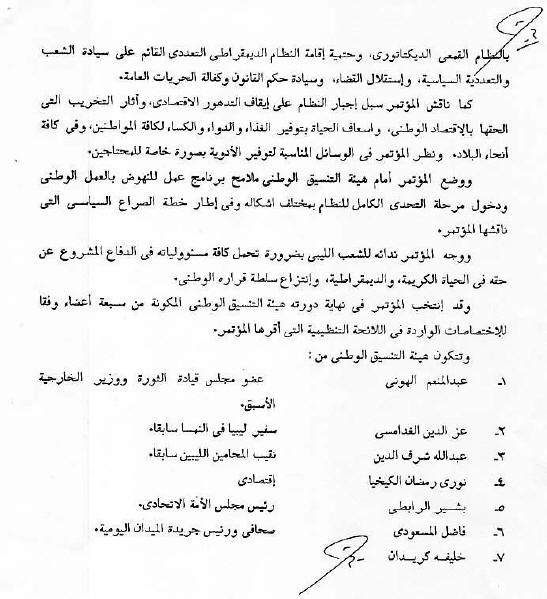 بالنظام القمعى الديكتاتورى، وحتمية إقامة النظام الديمقراطى التعددى القائم على سيادة الشعب
والتعددية السياسية، وإستقلال القضاء، وسيادة حكم القانون وكفالة الحريات العامة.
كما ناقش المؤتمر سبل إجبار النظام على إيقاف التدهور الاقتصادى، وأثار التخريب التى
الحقها بالإقتصاد الوطنى، واسعاف الحياة بتوفير الغذاء والدواء والكساء لكافة المواطنين، وفى كافة
أنحاء البلاد. ونظر المؤتمر فى الوسائل المناسبة لتوفير الأدوية بصورة خاصة للمحتاجين.
ووضع المؤتمر أمام هيئة التنسيق الوطنى ملامح برنامج عمل للنهوض بالعمل الوطنى
ودخول مرحلة التحدى الكامل للنظام بمختلف اشكاله وفى إطار خطة الصراع السياسى التى
ناقشها المؤتمر.
ووجه المؤتمر ندائه للشعب الليبى بضرورة تحمل كافة مسوولياته فى الدفاع المشروع عن
حقه فى الحياة الكريمة، والديمقراطية، وإنتزاع سلطة قراره الوطنى.
وقد إنتخب المؤتمر فى نهاية دورته هيئة التنسيق الوطنى المكونة من سبعة أعضاء وفقا
للإختصاصات الواردة فى اللائحة التنظيمية التى أقرها المؤتمر.
وتتكون هيئة التنسيق الوطنى من :
١ـ عبدالمنعم الهونى عضو مجلس قيادة الثورة ووزير الخارجية
الأسبق.
٢ـ عز الدين الغدامسى سفير ليبيا فى النمسا سابقا.
٣ـ عبدالله شرف الدين نقيب المحامين الليبين سابقا.
٤ـ نورى رمضان الكيخيا إقتصادى
٥ـ بشير الرابطى رئيس مجلس الأمة الاتحادى.
٦ـ فاضل المسعودى صحافى ورئيس جريدة الميدان اليومية.
٧ـ خليفه كريدان